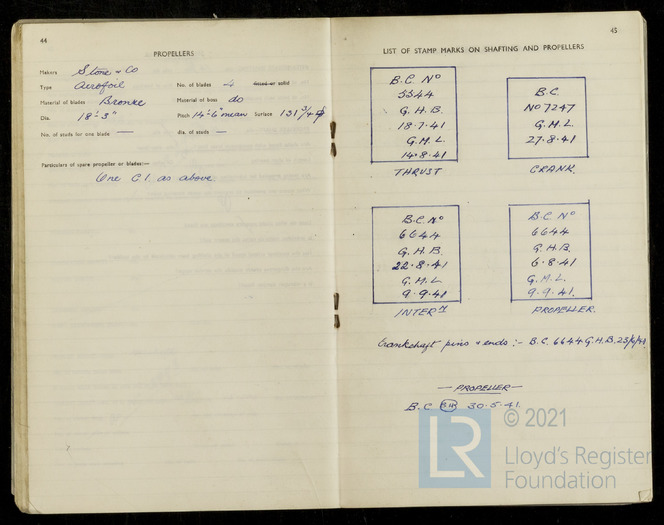 44
PROPELLERS
Makers Stone & Co
Type Aerofoil No. of blades 4 fitted or solid
Material of blades Bronze Material of boss do
Dia. 18'-3" Pitch 14'-6" mean Surface 131 3/4
No. of studs for one blade — dia. of studs —
Particulars of spare propeller or blades:—
One C.I. as above
45
LIST OF STAMP MARKS ON SHAFTING AND PROPELLERS
B.C. No
5344
G.H.B.
18.7.41
G.M.L.
14.8.41
THRUST
B.C.
No 7247
G.M.L.
27.8.41
CRANK.
B.C. No
6644
G.H.B.
22.8.41
G.M.L.
9.9.41
INTERM
B.C. No
6644
G.H.B.
6.8.41
G.M.L.
9.9.41.
PROPELLER.
Crankshaft pins & ends :- B.C. 6644 G.H.B.
— PROPELLER —
B.C 30.5.41.
© 2021
LR
Lloyd's Register
Foundation